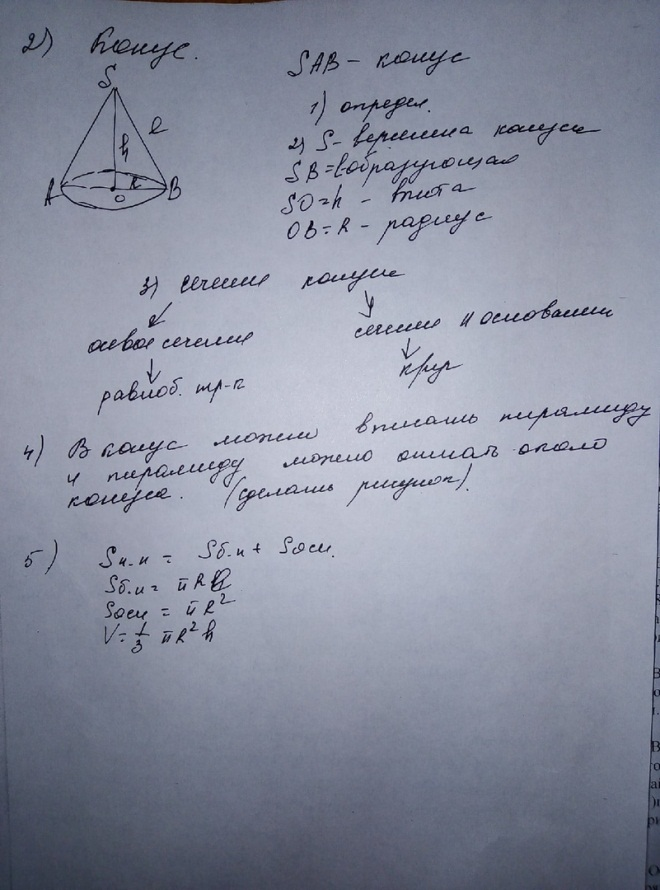 2) Конус.
S
l
h
R
A
O
B
SAB – конус
1) определ.
2) S – вершина конуса
SB = l образующая
SO = h – высота
OB = R – радиус
3) сечение конуса
осевое сечение
сечение || основанию
равноб. тр-к
круг
4) В конус можно вписать пирамиду
и пирамиду можно описать около
конуса. (сделать рисунок).
5) Sп.п = Sб.п + Sосн.
Sб.п = πRl
Sосн = πR²
V = 1/3 πR²h